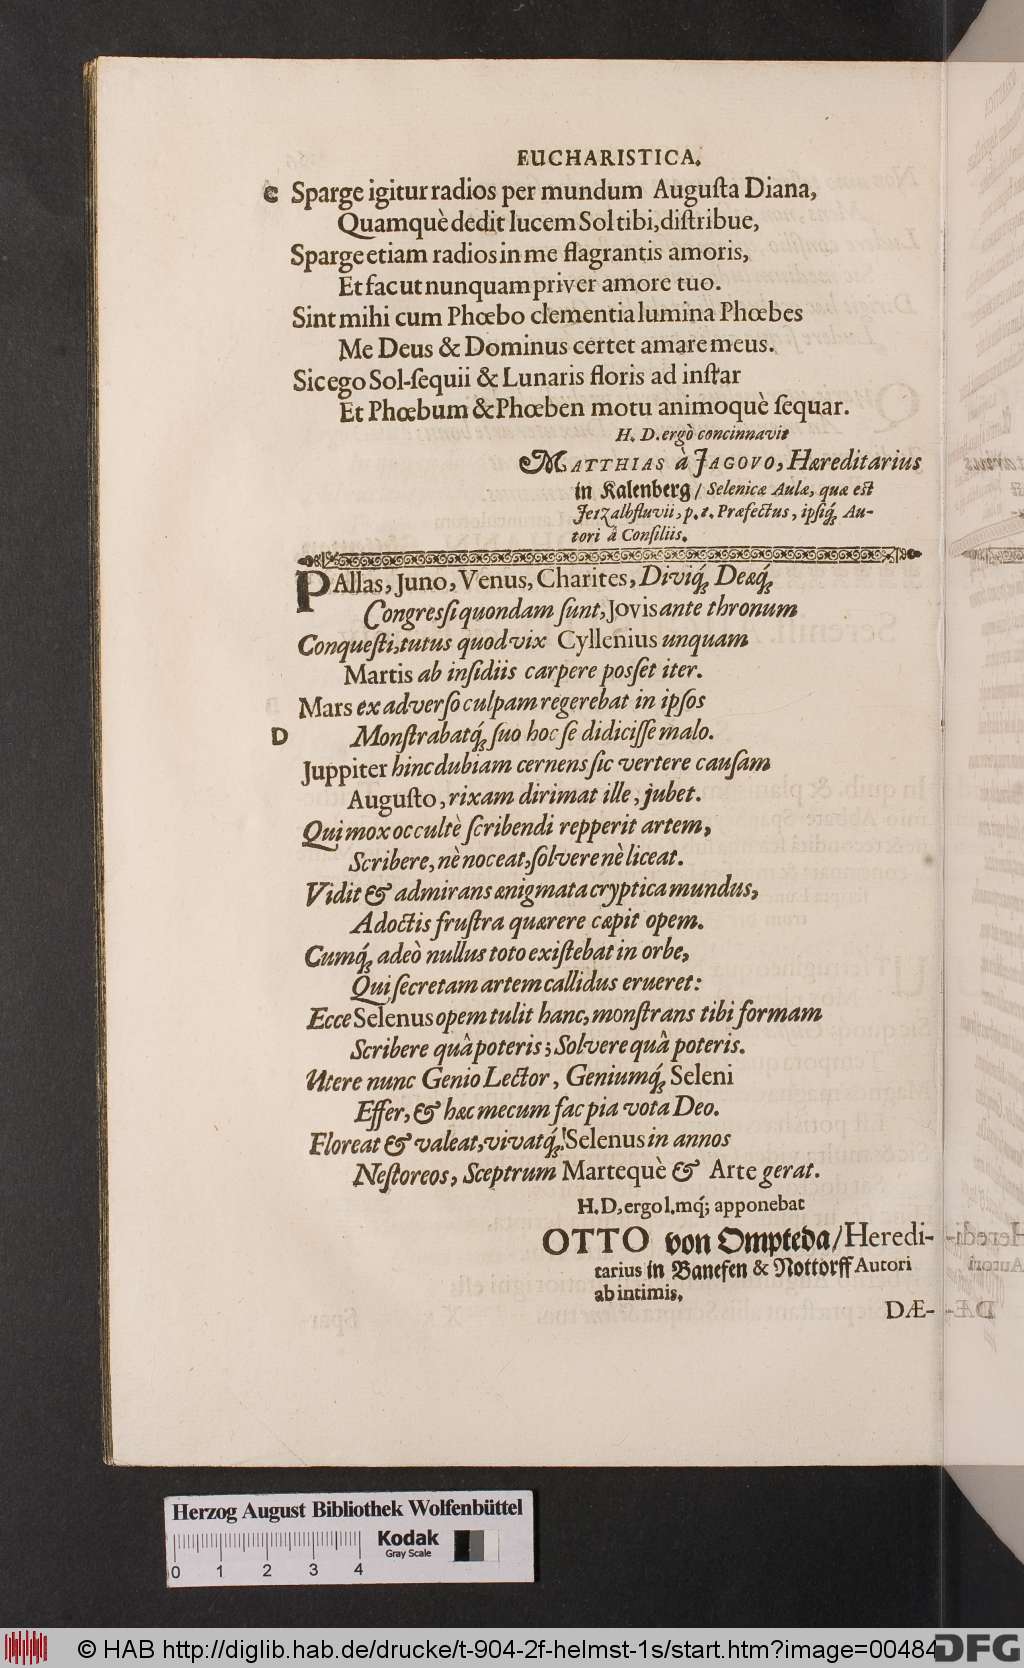 EUCHARISTICA.
C Sparge igitur radios per mundum Auguſta Diana,
Quamquè dedit lucem Sol tibi, diſtribue,
Sparge etiam radios in me flagrantis amoris,
Et fac ut nunquam priver amore tuo.
Sint mihi cum Phœbo clementia lumina Phœbes
Me Deus & Dominus certet amare meus.
Sic ego Sol-ſequii & Lunaris floris ad inſtar
Et Phœbum & Phœben motu animoquè ſequar.
H. D. ergò concinnavit
MATTHIAS à JAGOVO, Hæreditarius
in Kalenberg / Selenicæ Aulæ, quæ est
Jetzalbfluvii, p. t. Præfectus, ipſiq́ Au-
tori â Conſiliis.
PAllas, Juno, Venus, Charites, Diviq́ Deæq́
Congreſſi quondam ſunt, Jovis ante thronum
Conqueſti, tutus quod vix Cyllenius unquam
Martis ab inſidiis carpere poſſet iter.
Mars ex adverſo culpam regerebat in ipſos
D Monſtrabatq́ ſuo hoc ſe didiciſſe malo.
Juppiter hinc dubiam cernens ſic vertere cauſam
Auguſto, rixam dirimat ille, jubet.
Qui mox occultè ſcribendi repperit artem,
Scribere, nè noceat, ſolvere nè liceat.
Vidit & admirans ænigmata cryptica mundus,
A doctis fruſtra quærere cæpit opem.
Cumq́ adeò nullus toto exiſtebat in orbe,
Qui ſecretam artem callidus erueret:
Ecce Selenus opem tulit hanc, monſtrans tibi formam
Scribere quâ poteris; Solvere quâ poteris.
Utere nunc Genio Lector, Geniumq́ Seleni
Effer, & hæc mecum fac pia vota Deo.
Floreat & valeat, vivatq́! Selenus in annos
Neſtoreos, Sceptrum Martequè & Arte gerat.
H. D, ergo l. mq́; apponebat
OTTO von Ompteda / Heredi-
tarius in Banefen & Nottorff Autori
ab intimis.
DÆ-
Herzog August Bibliothek Wolfenbüttel
Kodak
Gray Scale
0 1 2 3 4
© HAB http://diglib.hab.de/drucke/t-904-2f-helmst-1s/start.htm?image=00484
DFG